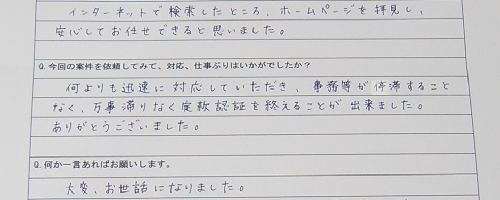 インターネットで検索したところ、ホームページを拝見し、
安心してお任せできると思いました。
Q.今回の案件を依頼してみて、対応、仕事ぶりはいかがでしたか?
何よりも迅速に対応していただき、事務等が停滞すること
なく、万事滞りなく定款認証を終えることが出来ました。
ありがとうございました。
Q.何か一言あればお願いします。
大変、お世話になりました。